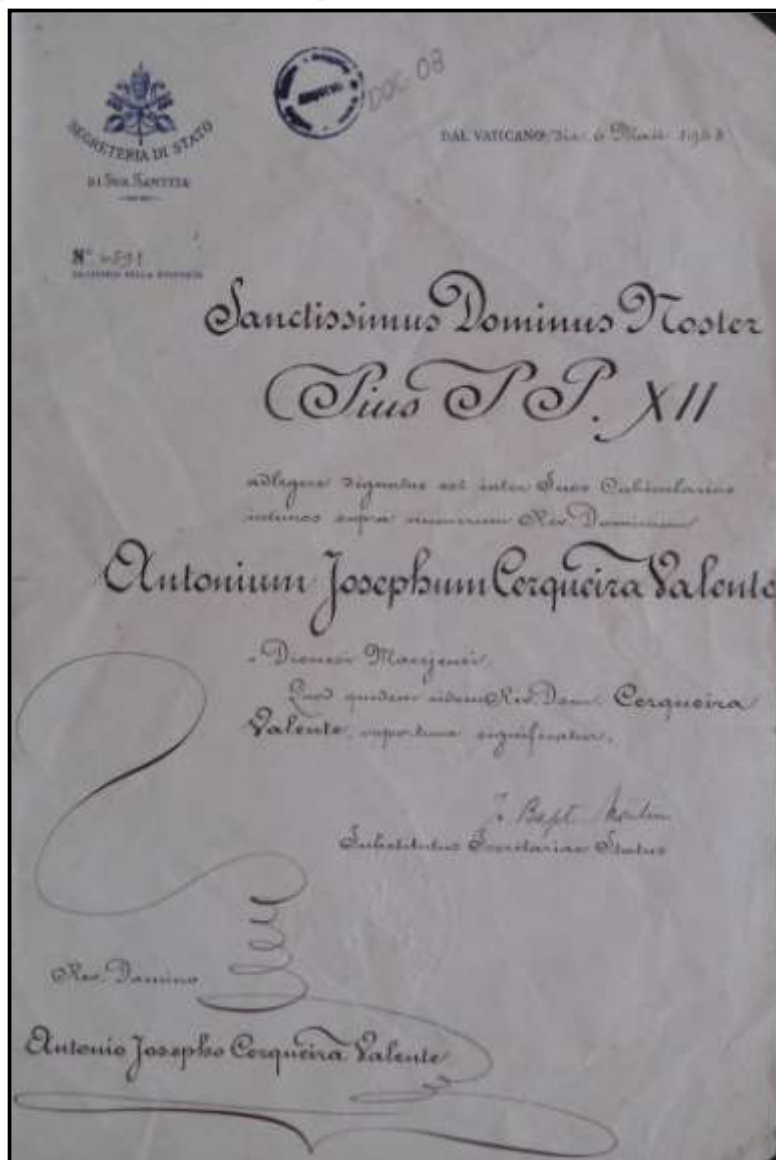 DOC. 08
SEGRETERIA DI STATO
DI SUA SANTITÀ
DAL VATICANO, die 6 Maii
N°
Sanctissimus Dominus Noster
Pius P P. XII
adlegere dignatus est inter Suos Cubicularios
intimos supra numerum Rev. Dominum
Antonium Josephum Cerqueira Valente
e Dioecesi
Quod quidem eidem Rev. Dom. Cerqueira
Valente, opportune significatur.
J. Bapt. Montini
Substitutus Secretariae Status
Rev. Domino
Antonio Josepho Cerqueira Valente